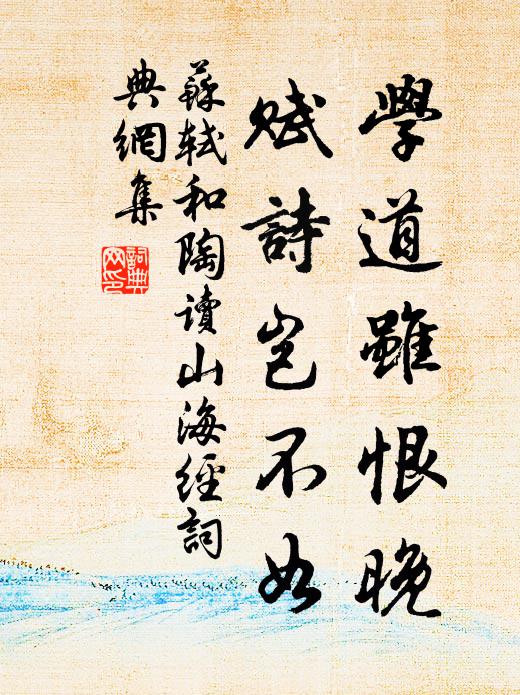 學道雖恨晚
賦詩豈不如
蘇軾和陶讀山海經詞
典網集
詞典
网印